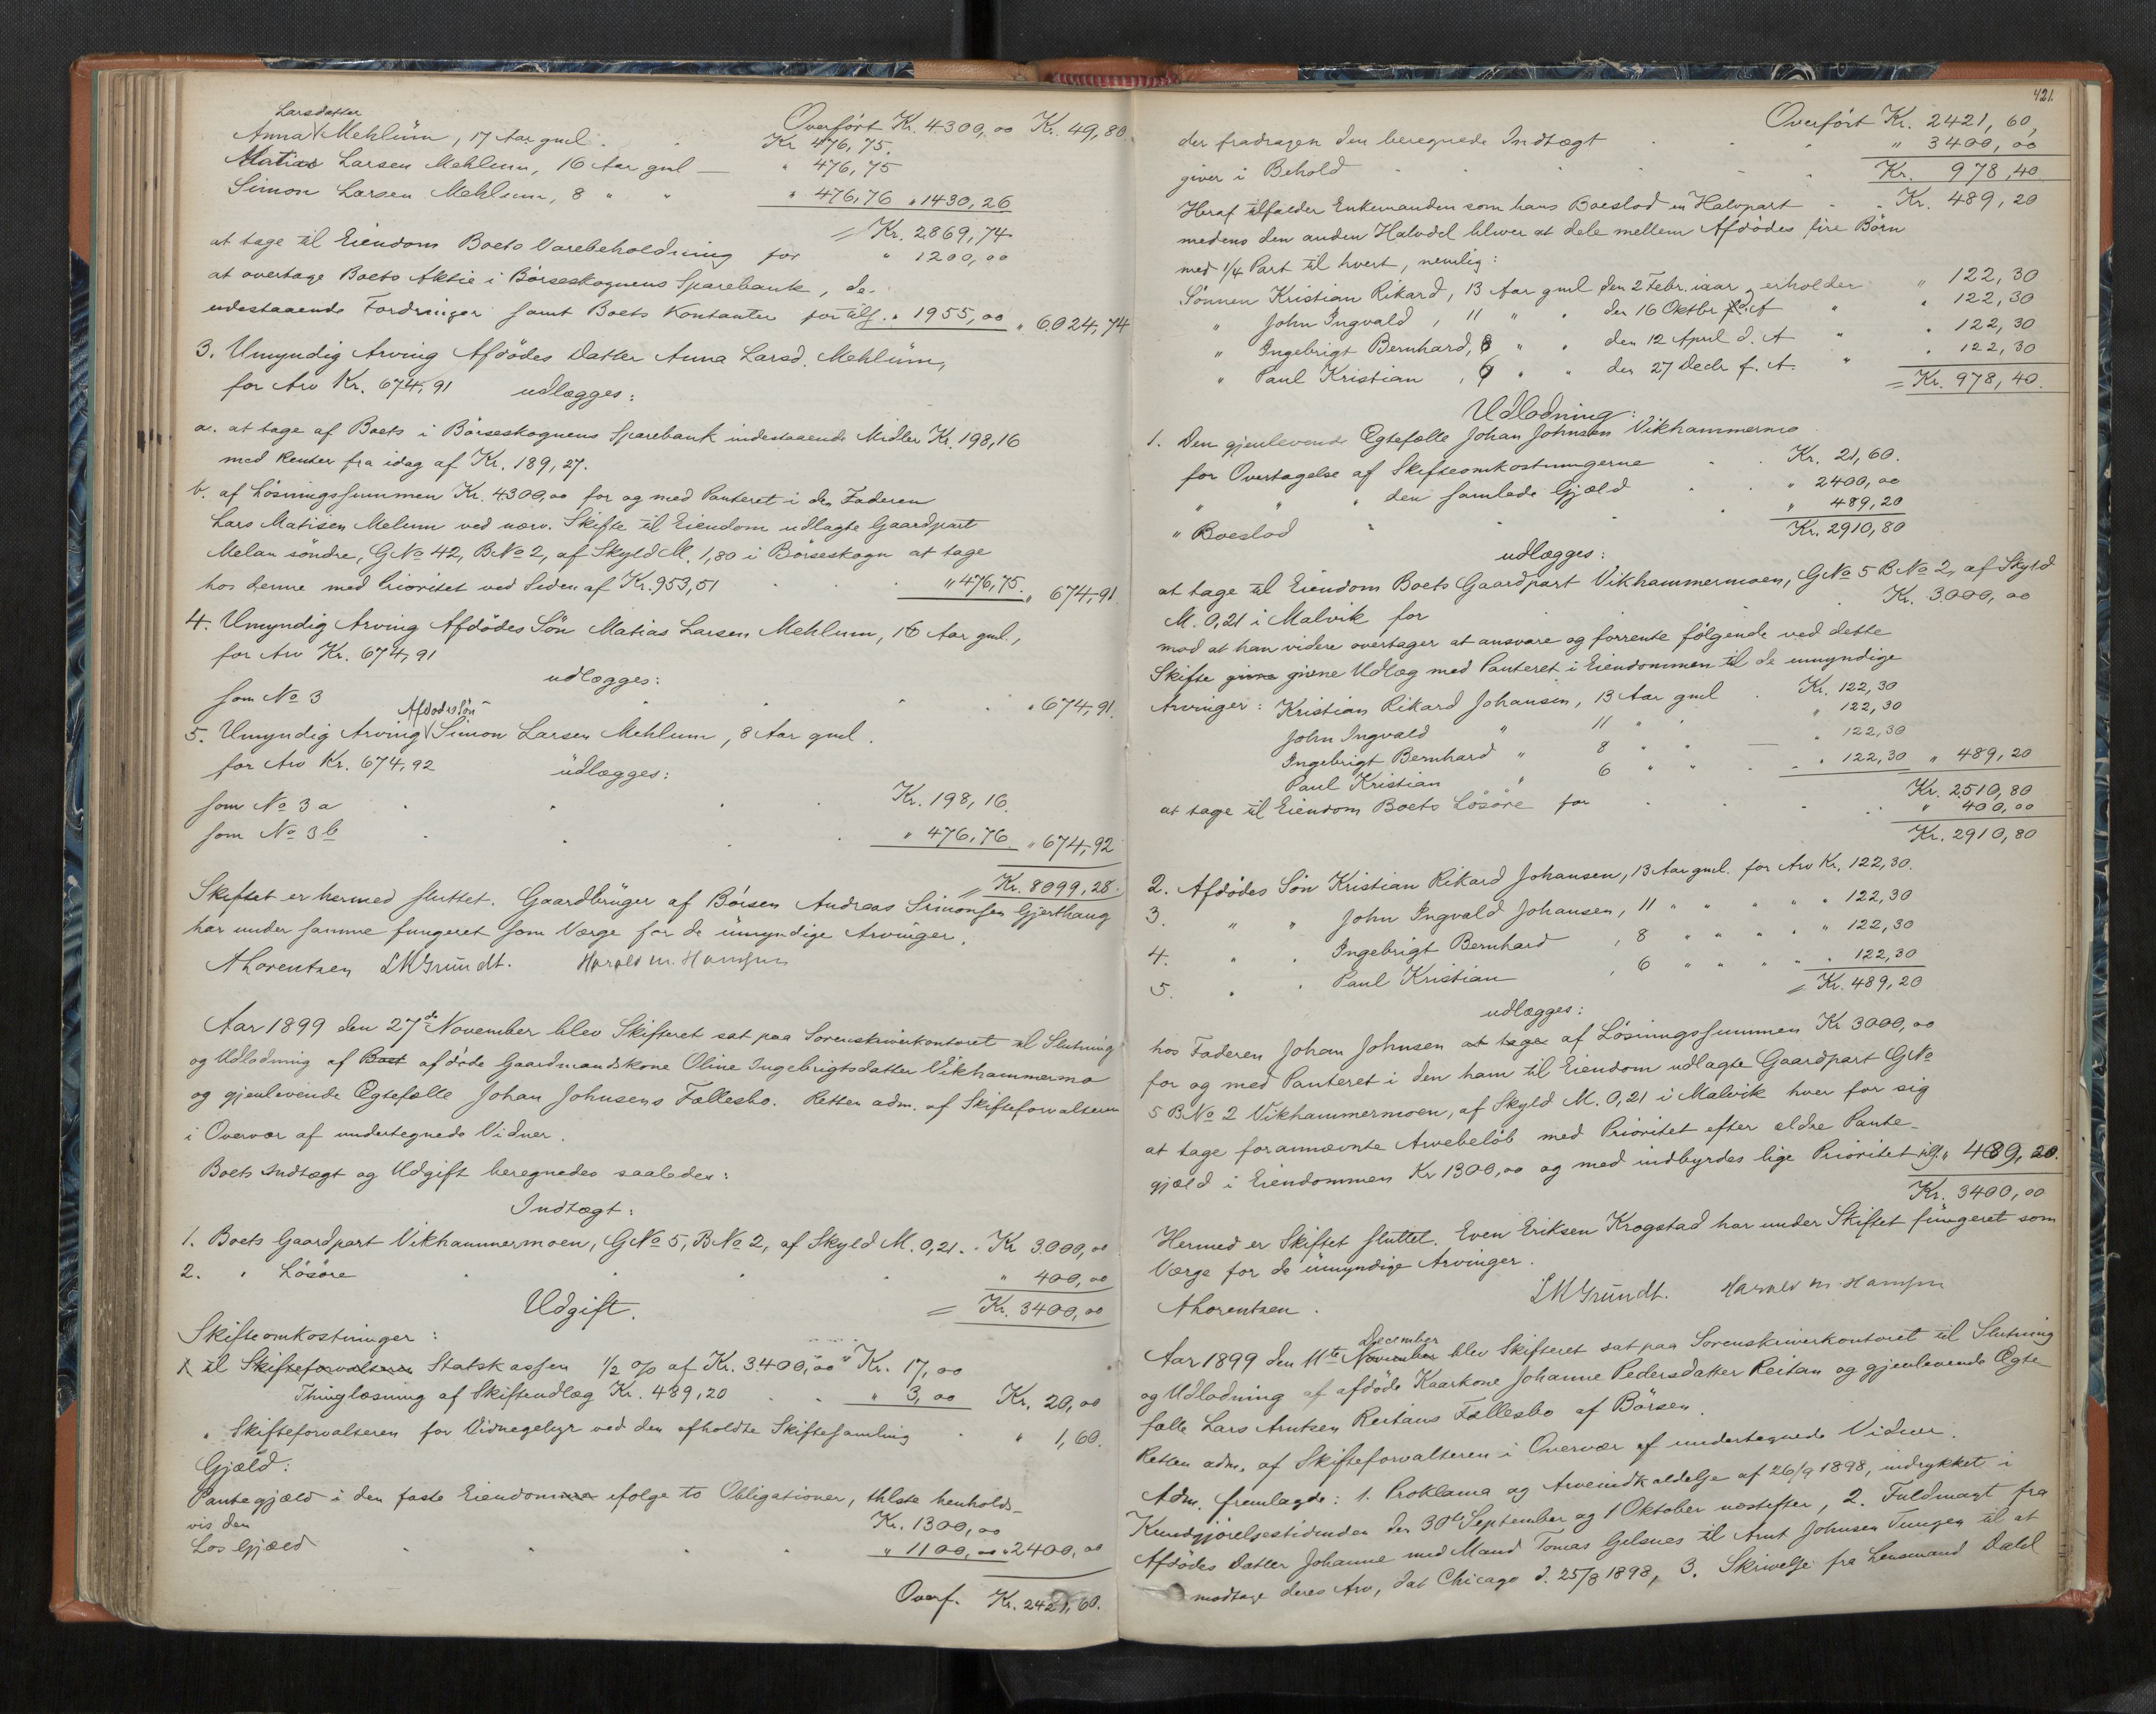 Larsdatter
Anna Mehlüm, 17 Aar gml. Overfört Kr. 4300,00 Kr. 49,80
Kr 476,75.
Matias Larsen Mehlum, 16 Aar gml — " 476,75
Simon Larsen Mehlum, 8 " " " 476,76 " 1430,26
= Kr. 2869,74
at tage til Eiendom Boets Varebeholdning for " 1200,00
at overtage Boets Aktie i Börseskognens Sparebank, de
udestaaende Fordringer samt Boets Kontanter for tils. " 1955,00 " 6024,74
3. Umyndig Arving Afdödes Datter Anna Larsd. Mehlüm,
for Arv Kr. 674,91 udlægges:
a. at tage af Boets i Börseskognens Sparebank indestaaende Midler Kr. 198,16
med Renter fra idag af Kr. 189,27.
b. af Lösningssummen Kr. 4300,00 for og med Panteret i den Faderen
Lars Matisen Melum ved nærv. Skifte til Eiendom udlagte Gaardpart
Melan söndre, GNo 42, BNo 2, af Skyld M. 1,80 i Börseskogn at tage
hos denne med Prioritet ved Siden af Kr. 953,51 " 476,75. " 674,91.
4. Umyndig Arving Afdödes Sön Matias Larsen Mehlum, 16 Aar gml.,
for Arv Kr. 674,91
udlægges:
som No 3 " 674,91.
Afdödes Sön
5. Umyndig Arving Simon Larsen Mehlum, 8 Aar gml.
for Arv Kr. 674,92 udlægges:
som No 3 a Kr. 198,16.
som No 3 b " 476,76 " 674,92
= Kr. 8099,28.
Skiftet er hermed sluttet. Gaardbrüger af Börsen Andreas Simonsen Gjerthaug
har under samme fungeret som Værge for de ümyndige Arvinger.
ALorentzen LMGründt. Harald M. Hansen
Aar 1899 den 27de November blev Skifteret sat paa Sorenskriverkontoret til Slutning
og Udlodning af Boet afdöde Gaardmandskone Oline Ingebrigtsdatter Vikhammermo
og gjenlevende Ægtefælle Johan Johnsens Fællesbo. Retten adm. af Skifteforvalteren
i Overvær af undertegnede Vidner.
Boets Indtægt og Udgift beregnedes saaledes:
Indtægt:
1. Boets Gaardpart Vikhammermoen, GNo 5, BNo 2, af Skyld M. 0,21. Kr 3000,00
2. " Lösöre " 400,00
Udgift. = Kr. 3400,00
Skifteomkostninger:
til Skifteforvalteren Statskassen ½ % af Kr. 3400,00 Kr. 17,00
Thinglæsning af Skifteudlæg Kr. 489,20 " 3,00 Kr. 20,00
" Skifteforvalteren for Vidnegebyr ved den afholdte Skiftesamling " 1,60.
Gjæld:
Pantegjæld i den faste Eiendom ifølge to Obligationer, thlste henholds-
vis den Kr. 1300,00
Lös Gjæld " 1100,00 " 2400,00
Overf. Kr. 2421,60.
421.
Overfört Kr. 2421,60,
der fradragen den beregnede Indtægt " 3400,00
giver i Behold Kr. 978,40
Heraf tilfalder Enkemanden som hans Boeslod en Halvpart Kr. 489,20
medens den anden Halvdel bliver at dele mellem Afdödes fire Börn
med ¼ Part til hvert, nemlig:
Sönnen Kristian Rikard, 13 Aar gml den 2 Febr. iaar, erholder " 122,30
" John Ingvald, 11 " " den 16 Oktbr d. A " " 122,30
" Ingebrigt Bernhard, 8 " " den 12 April d. A " " 122,30
" Paul Kristian, 6 " " den 27 Decbr f. A. " " 122,30
= Kr. 978,40.
Udlodning:
1. Den gjenlevende Ægtefælle Johan Johnsen Vikhammermo
for Overtagelse af Skifteomkostningerne Kr. 21,60.
" " " den samlede Gjæld " 2400,00
" Boeslod " 489,20
Kr. 2910,80
udlægges:
at tage til Eiendom Boets Gaardpart Vikhammermoen, GNo 5 BNo 2, af Skyld
M. 0,21 i Malvik for Kr. 3000,00
mod at han videre overtager at ansvare og forrente følgende ved dette
Skifte givne givne Udlæg med Panteret i Eiendommen til de umyndige
Arvinger: Kristian Rikard Johansen, 13 Aar gml Kr. 122,30
John Ingvald " 11 " " " 122,30
Ingebrigt Bernhard " 8 " " — " 122,30
Paul Kristian " 6 " " " 122,30 " 489,20
Kr. 2510,80
at tage til Eiendom Boets Lösöre for " 400,00
Kr. 2910,80
2. Afdödes Sön Kristian Rikard Johansen, 13 Aar gml. for Arv Kr. 122,30.
3. " " John Ingvald Johansen, 11 " " " " " 122,30
4. " " Ingebrigt Bernhard, 8 " " " " " 122,30
5. " " Paul Kristian, 6 " " " " " 122,30
= Kr. 489,20
udlægges:
hos Faderen Johan Johnsen at tage af Lösningssummen Kr 3000,00
for og med Panteret i den ham til Eiendom udlagte Gaardpart GNo
5 BNo 2 Vikhammermoen, af Skyld M. 0,21 i Malvik hver for sig
at tage forannævnte Arvebelöb med Prioritet efter ældre Pante-
gjæld i Eiendommen Kr 1300,00 og med indbyrdes lige Prioritet tils. " 489,20.
Kr. 3400,00
Hermed er Skiftet sluttet. Even Eriksen Krogstad har under Skiftet füngeret som
Værge for de ümyndige Arvinger.
ALorentzen. LMGründt. Harald M. Hansen
December
Aar 1899 den 11te November blev Skifteret sat paa Sorenskriverkontoret til Slutning
og Udlodning af afdöde Kaarkone Johanne Pedersdatter Reitan og gjenlevende Ægte-
fælle Lars Arntsen Reitans Fællesbo af Börsen.
Retten adm. af Skifteforvalteren i Overvær af undertegnede Vidner.
Adm. fremlagde: 1. Proklama og Arveindkaldelse af 26/9 1898, indrykket i
Kundgjörelsestidenden den 30te September og 1 Oktober næstefter, 2. Fuldmagt fra
Afdödes Datter Johanne med Mand Tomas Gelsnes til Arnt Johnsen Tungen til at
modtage deres Arv, dat Chicago d. 25/8 1898, 3. Skrivelse fra Lensmand Dahl